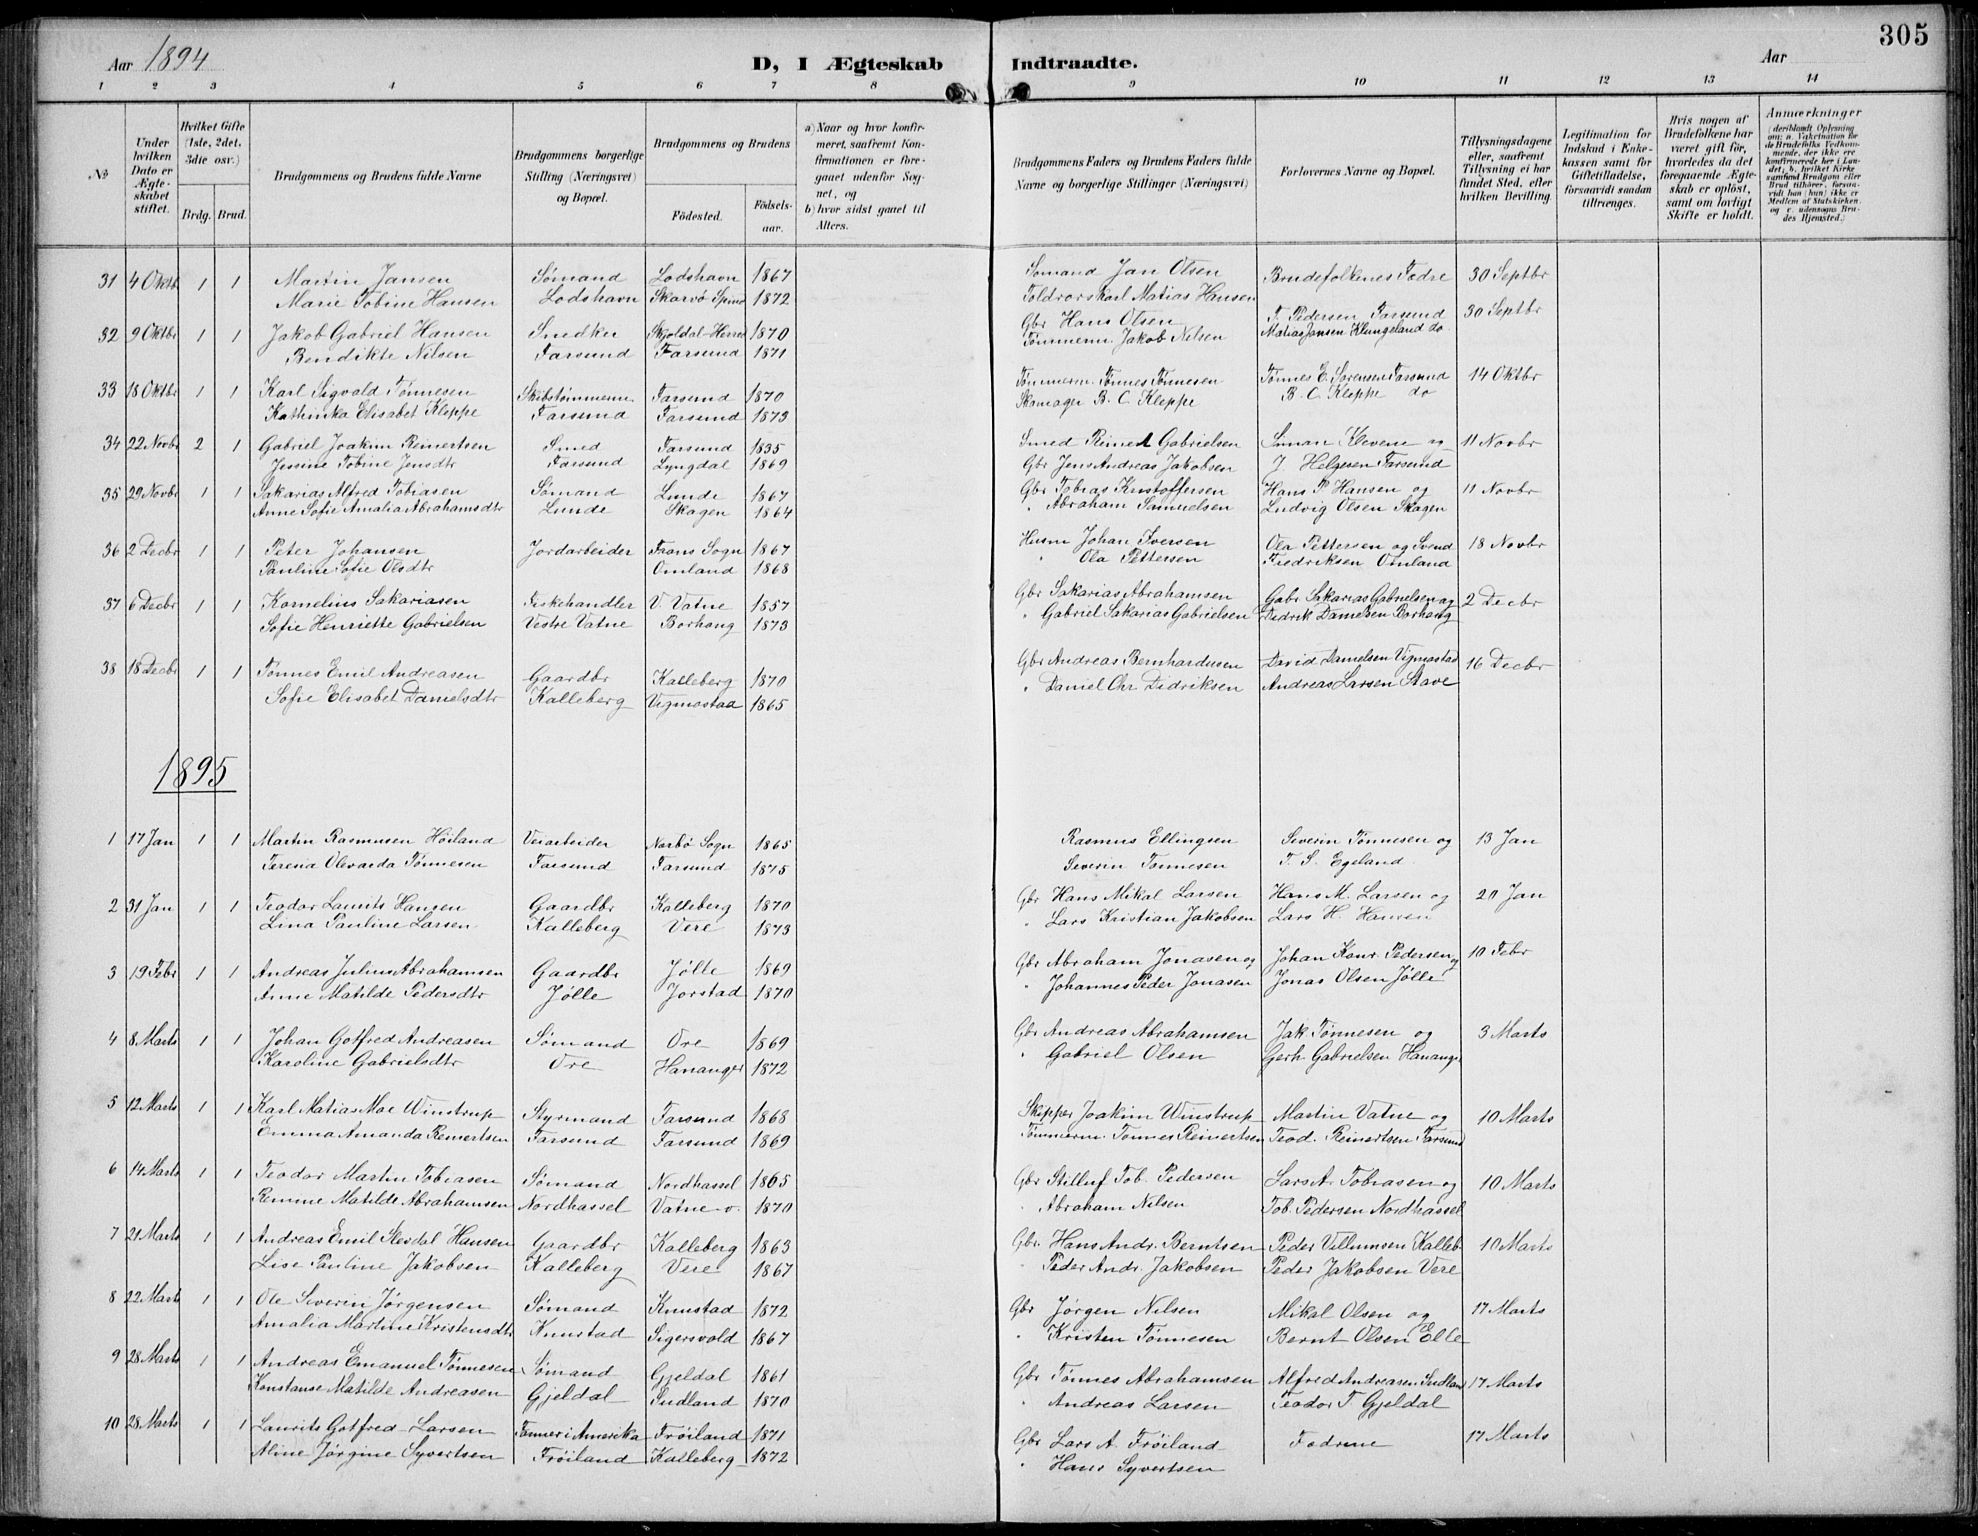 Aar 1894 D, I Ægteskab Indtraadte. Aar 305
1 2 3 4 5 6 7 8 9 10 11 12 13 14
No
Under hvilken Dato er Ægteskabet stiftet.
Hvilket Gifte (1ste, 2det, 3die osv.)
Brdg. Brud.
Brudgommens og Brudens fulde Navne
Brudgommens borgerlige Stilling (Næringsvei) og Bopæl.
Brudgommens og Brudens
Fødested. Fødselsaar.
a) Naar og hvor konfirmeret, saafremt Konfirmationen er foregaaet udenfor Sognet, og
b) hvor sidst gaaet til Alters.
Brudgommens Faders og Brudens Faders fulde Navne og borgerlige Stillinger (Næringsvei)
Forlovernes Navne og Bopæl.
Tillysningsdagene eller, saafremt Tillysning ei har fundet Sted, efter hvilken Bevilling.
Legitimation for Indskud i Enkekassen samt for Giftetilladelse, forsaavidt saadan tiltrænges.
Hvis nogen af Brudefolkene har været gift før, hvorledes da det foregaaende Ægteskab er opløst, samt om lovligt Skifte er holdt.
Anmærkninger
31 4 Oktb 1 1 Martin Jansen Sømand Lodshavn 1867 Sømand Jan Olsen Brudefolkenes Fædre 30 Septbr
Marie Tobine Hansen Lodshavn Skarvø Spind 1872 Toldrorskarl Matias Hansen
32 9 Oktbr 1 1 Jakob Gabriel Hansen Snedker Skjoldal-Herred 1870 Gbr Hans Olsen T. Pedersen Farsund 30 Septbr
Bendikte Nilsen Farsund Farsund 1871 Tømmerm. Jakob Nilsen Matias Jansen Klungeland do
33 18 Oktbr 1 1 Karl Sigvald Tønnesen Skibstømmerm Farsund 1870 Tømmerm. Tønnes Tønnesen Tønnes E. Sørensen Farsund 14 Oktbr
Kathinka Elisabet Kleppe Farsund Farsund 1873 Skomager B. C. Kleppe B. C. Kleppe do
34 22 Novbr 2 1 Gabriel Joakim Reinertsen Smed Farsund 1835 Smed Reinert Gabrielsen Simon Klevene og 11 Novbr
Jensine Tobine Jensdtr Farsund Lyngdal 1869 Gbr Jens Andreas Jakobsen J. Helgesen Farsund
35 29 Novbr 1 1 Sakarias Alfred Tobiasen Sømand Lunde 1867 Gbr Tobias Kristoffersen Hans P Hansen og 11 Novbr
Anne Sofie Amalia Abrahamsdtr Lunde Skagen 1864 " Abraham Samuelsen Ludvig Olsen Skagen
36 2 Decbr 1 1 Peter Johansen Jordarbeider Frans Sogn 1867 Husm Johan Iversen Ola Pettersen og Svend 18 Novbr
Pauline Sofie Olsdtr Omland 1868 " Ola Pettersen Fredriksen Omland
37 6 Decbr 1 1 Kornelius Sakariasen Fiskehandler V. Vatne 1857 Gbr Sakarias Abrahamsen Gabr Sakarias Gabrielsen og 2 Decbr
Sofie Henriette Gabrielsen Vestre Vatne Borhaug 1873 " Gabriel Sakarias Gabrielsen Didrik Danielsen Borhaug
38 18 Decbr 1 1 Tønnes Emil Andreasen Gaardbr Kalleberg 1870 Gbr Andreas Bernhardusen David Danielsen Vigmostad 16 Decbr
Sofie Elisabet Danielsdtr Kalleberg Vigmostad 1865 " Daniel Chr Didriksen Andreas Larsen Stave
1895
1 17 Jan 1 1 Martin Rasmusen Høiland Veiarbeider Nærbø Sogn 1865 Rasmus Ellingsen Severin Tønnesen og 13 Jan
Teresia Olevarda Tønnesen Farsund Farsund 1875 Severin Tønnesen T. S. Egeland
2 31 Jan 1 1 Teodor Laurits Hansen Gaardbr Kalleberg 1870 Gbr Hans Mikal Larsen Hans M. Larsen og 20 Jan
Lina Pauline Larsen Kalleberg Vere 1873 " Lars Kristian Jakobsen Lars H. Hansen
3 19 Febr 1 1 Andreas Julius Abrahamsen Gaardbr Jølle 1869 Gbr Abraham Jonasen og Johan Konr Pedersen og 10 Febr
Anne Matilde Pedersdtr Jølle Jørstad 1870 " Johannes Peder Jonasen Jonas Olsen Jølle
4 8 Marts 1 1 Johan Gotfred Andreasen Sømand Ore 1869 Gbr Andreas Abrahamsen Jak Tønnesen og 3 Marts
Karoline Gabrielsdtr Ore Hananger 1872 " Gabriel Olsen Gerh Gabrielsen Hananger
5 12 Marts 1 1 Karl Matias Moe Winstrup Styrmand Farsund 1868 Skipper Joakim Winstrup Martin Vatne og 10 Marts
Emma Amanda Reinertsen Farsund Farsund 1869 Tømmerm. Tønnes Reinertsen Teod. Reinertsen Farsund
6 14 Marts 1 1 Teodor Martin Tobiasen Sømand Nordhassel 1865 Gbr Tob. Pedersen Lars A. Tobiasen og 10 Marts
Remine Matilde Abrahamsen Nordhassel Vatne ø. 1870 " Abraham Nilsen Tob. Pedersen Nordhassel
7 21 Marts 1 1 Andreas Emil Slevdal Hansen Gaardbr Kalleberg 1863 Gbr. Hans Andr. Berntsen Peder Villumsen Kalleb 10 Marts
Lise Pauline Jakobsen Kalleberg Vere 1867 " Peder Andr. Jakobsen Peder Jakobsen Vere
8 22 Marts 1 1 Ole Severin Jørgensen Sømand Knustad 1872 Gbr Jørgen Nilsen Mikal Olsen og 17 Marts
Amalia Martine Kristensdtr Knustad Sigersvold 1867 " Kristen Tønnesen Bernt Olsen Elle
9 28 Marts 1 1 Andreas Emanuel Tønnesen Sømand Gjeldal 1861 Gbr Tønnes Abrahamsen Alfred Andreasen Sudland 17 Marts
Konstanse Matilde Andreasen Gjeldal Sudland 1870 " Andreas Larsen Teodor T Gjeldal
10 28 Marts 1 1 Laurits Gotfred Larsen Tømmer i Amerika Frøiland 1871 Gbr Lars A. Frøiland Fædrene 17 Marts
Aline Jørgine Syvertsen Frøiland Kalleberg 1872 " Hans Syvertsen